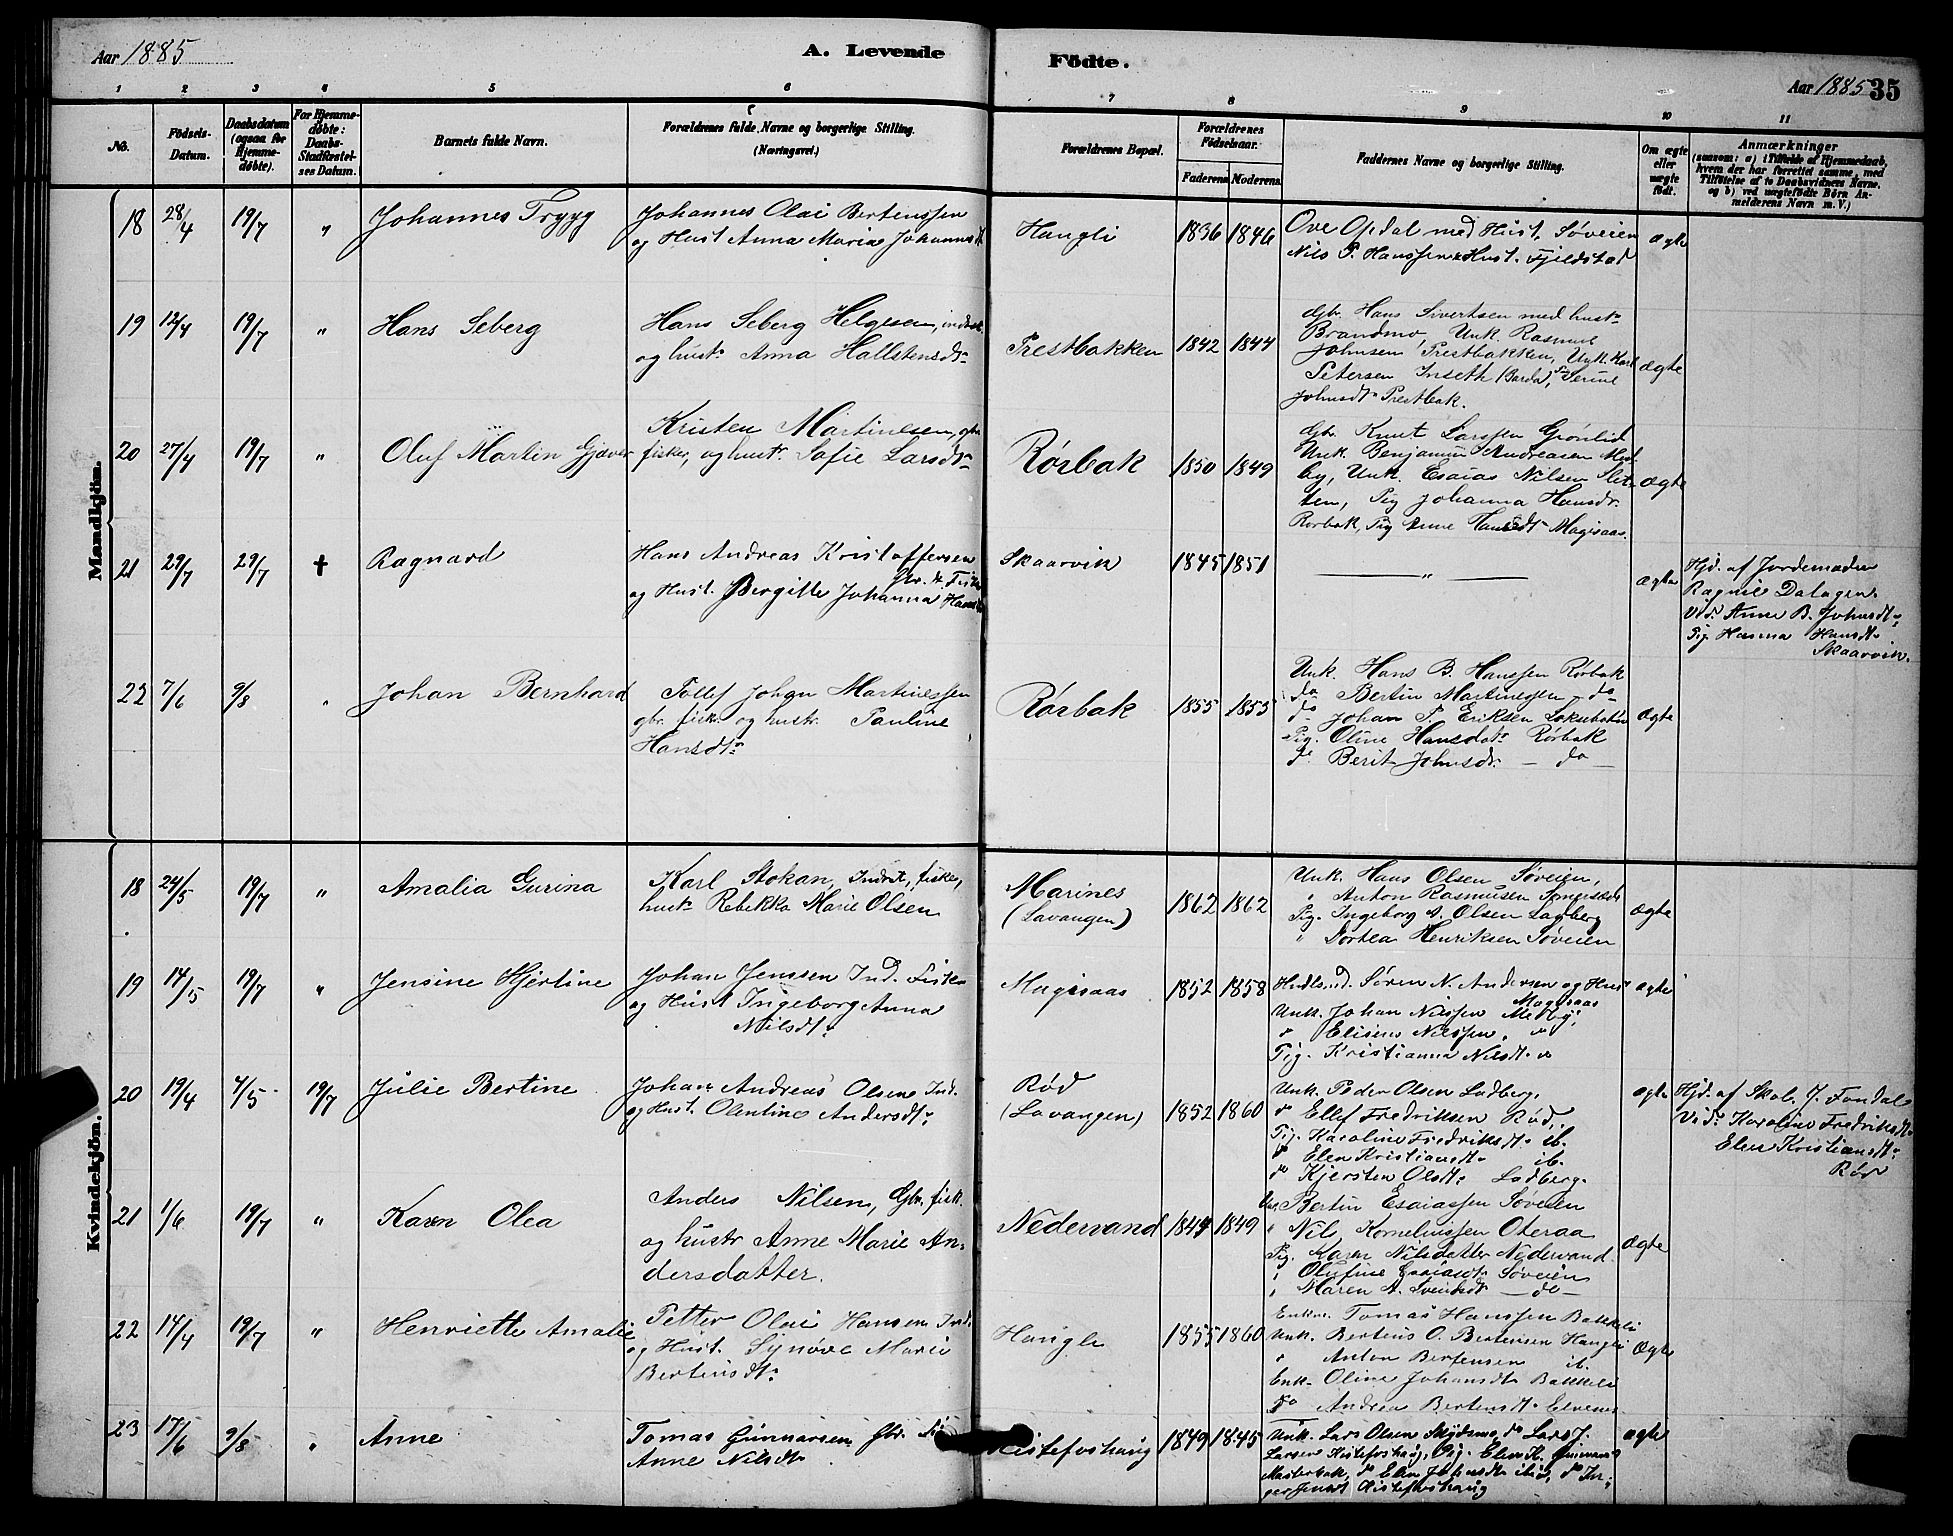 Aar 1885
A. Levende Födte.
Aar 1885 35
1 2 3 4 5 6 7 8 9 10 11
No.
Födsels-Datum.
Daabsdatum (ogsaa for Hjemmedöbte).
For Hjemmedöbte: Daabs-Stadfæstelses Datum.
Barnets fulde Navn.
Forældrenes fulde Navne og borgerlige Stilling. (Næringsvei.)
Forældrenes Bopæl.
Forældrenes Födselsaar.
Faderens Moderens.
Faddernes Navne og borgerlige Stilling.
Om ægte eller uægte födt.
Anmærkninger
(saasom: a) i Tilfælde af Hjemmedaab,
hvem der har forrettet samme, med
Tilföielse af to Daabsvidners Navne,
og b) ved uægtefödte Börn An-
melderens Navn m. V.)
Mandkjön.
18 28/4 19/7 " Johannes Trygg
Johannes Olai Bertenssen
og Hust Anna Maria Johannesdt
Hangli 1836 1846
Ove Opdal med Hust. Søveien
Nils P. Hanssen & Hust. Fjeldstad
ægte
19 12/4 19/7 " Hans Seberg
Hans Seberg Helgesen, inds.
og hustr Anna Hallstensdtr
Prestbakken 1842 1844
Gbr. Hans Sivertsen med hustr
Brandmo, Unk. Rasmus
Johnsen Prestbakken, Unk. Karl
Petersen Inseth (Bardo), Pig Serine
Johnsdtr Prestbak.
ægte
20 27/4 19/7 " Oluf Martin Gjæver
Kristen Martinesen, gbr
fisker, og hustr. Sofie Larsdtr
Rørbak 1850 1849
Gbr. Knut Larssen Grønlid
Unk. Benjamin Andreasen Med-
by, Unk. Esaias Nilsen Slet-
ten, Pig Johanna Hansdr.
Rørbak, Pig Anne Hansdtr Magisaas.
ægte
21 29/7 29/7 † Ragnard
Hans Andreas Kristoffersen
Gbr. & Fisk
og Hust. Bergitte Johanna Hansdt
Skaarvik 1845 1851
— " —
ægte
Hjd. af Jordemoder
Ragnie Dalagen
Vid: Anne B. Johnsdt.,
Pig. Hanna Hansdt.
Skaarvik.
22 7/6 9/8 " Johan Bernhard
Tollef Johan Martinessen
gbr. fisk. og hustr. Pauline
Hansdtr
Rørbak 1855 1855
Unk. Hans B. Hanssen Rørbak
do Bertin Martinessen — do —
do Johan P. Eriksen
Pig. Oline Hansdatr Rørbak
do Berit Johnsdr. — do —
ægte
Kvindekjön.
18 24/5 19/7 " Amalia Gurina
Karl Stokan, Indr., fisker,
hustr Rebekka Marie Olsen
Marines
(Lavangen)
1862 1862
Unk. Hans Olsen Søveien,
" Anton Rasmusen
Pig. Ingeborg A. Olsen Ladberg
" Dortea Henriksen Søveien
ægte
19 14/5 19/7 " Jensine Hjertine
Johan Jenssen Ind. Fisker
og Hust Ingeborg Anna
Nilsdt.
Magisaas 1852 1858
Søren N. Andersen og Hust
Magisaas
Unk. Johan Nilssen Medby,
" Elisæus Nilssen, "
Pig. Kristianna Nilsdt. "
ægte
20 19/4 4/5 19/7 Julie Bertine
Johan Andreas Olsen Ind.
og Hust. Olentine Andersdt.
Rød
(Lavangen)
1852 1860
Unk. Peder Olsen Ladberg.
do Ellef Fredriksen Rød.
Pig. Karoline Fredriksdt. ib.
do Elen Kristiansdt. ib.
do Kjersten Olsdt. Ladberg.
ægte
Hjd. af Skol. J. Fondal
Vid: Karoline Fredriksdt.
Elen Kristiansdt.
Rød
21 1/6 19/7 " Karen Olea
Anders Nilsen, Gbr. fisk.
og hustr Anne Marie An-
dersdatter.
Nedervand 1844 1849
Unk. Bertin Esaiassen Søveien
" Nils Korneliussen Oteraa
Pig. Karen Nilsdatter Nedervand
" Olufine Esaiasdt. Søveien
" Maren A. — do —
ægte
22 14/4 19/7 " Henriette Amalie
Petter Olai Hansen Ind.
og Hust. Synøve Marie
Bertensdt.
Hangli 1855 1860
Enkm. Tomas Hanssen Bakkeli
Unk. Bertens O. Bertensen Hangli
" Anton Bertensen ib.
Enk. Oline Johansdt. Bakkeli
Andrea Bertensdt. Elvenes
Ægte
23 17/6 9/8 " Anne
Tomas Gunnarsen Gbr.
Anne Nilsdtr
Kistefoshaug 1849 1845
Unk. Lars Olsen do Lars J.
Larsen Kistefoshaug, Pig. Elen K.
do Elen Johansdt. ibid, do In-
ger Jensdt Kistefoshaug
ægte